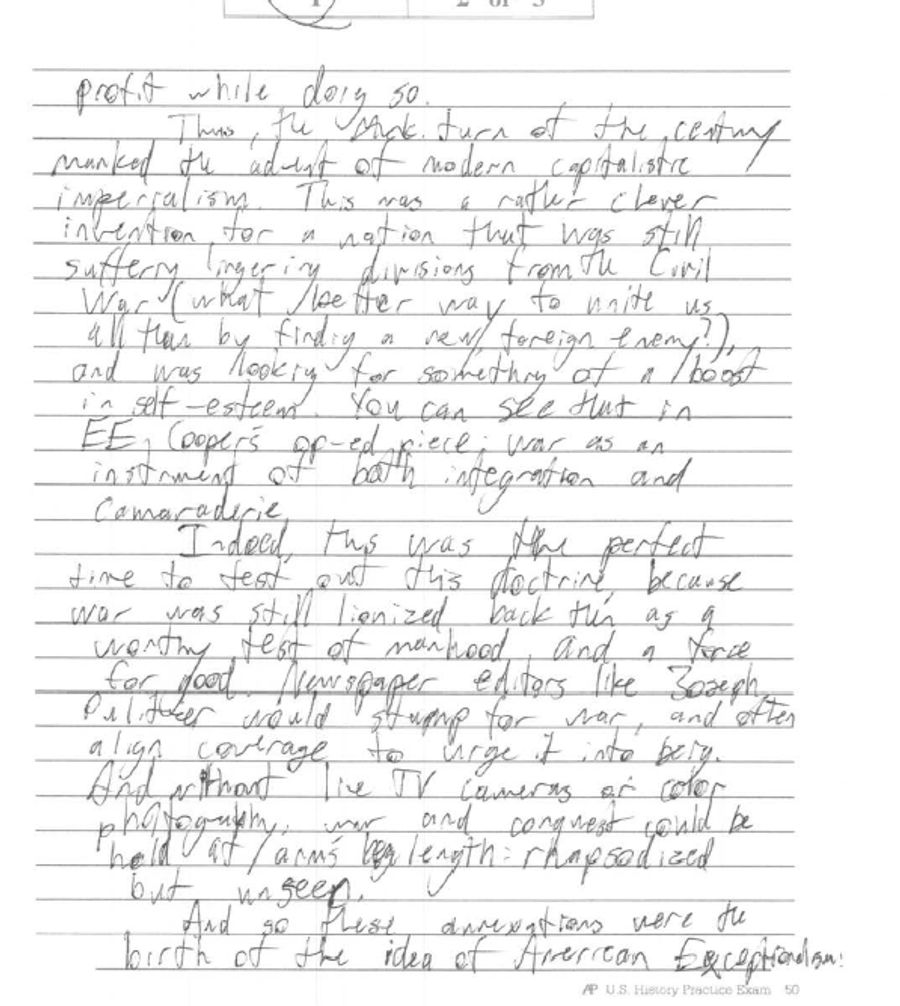 1 2 or 3
profit while doing so.
Thus, the turn of the century
marked the advent of modern capitalistic
imperialism. This was a rather clever
invention for a nation that was still
suffering lingering divisions from the Civil
War (what better way to unite us
all than by finding a new, foreign enemy?),
and was looking for something of a boost
in self-esteem. You can see that in
EE, Cooper's op-ed piece: war as an
instrument of both integration and
Camaraderie
Indeed, this was the perfect
time to test out this doctrine, because
war was still lionized back then as a
worthy test of manhood, and a force
for good. Newspaper editors like Joseph
Pulitzer would stump for war, and often
align coverage to urge it into being.
And without live TV cameras or color
photography, war and conquest could be
held at arm's length: rhapsodized
but unseen.
And so these annexations were the
birth of the idea of American Exceptionalism:
AP U.S. History Practice Exam 50